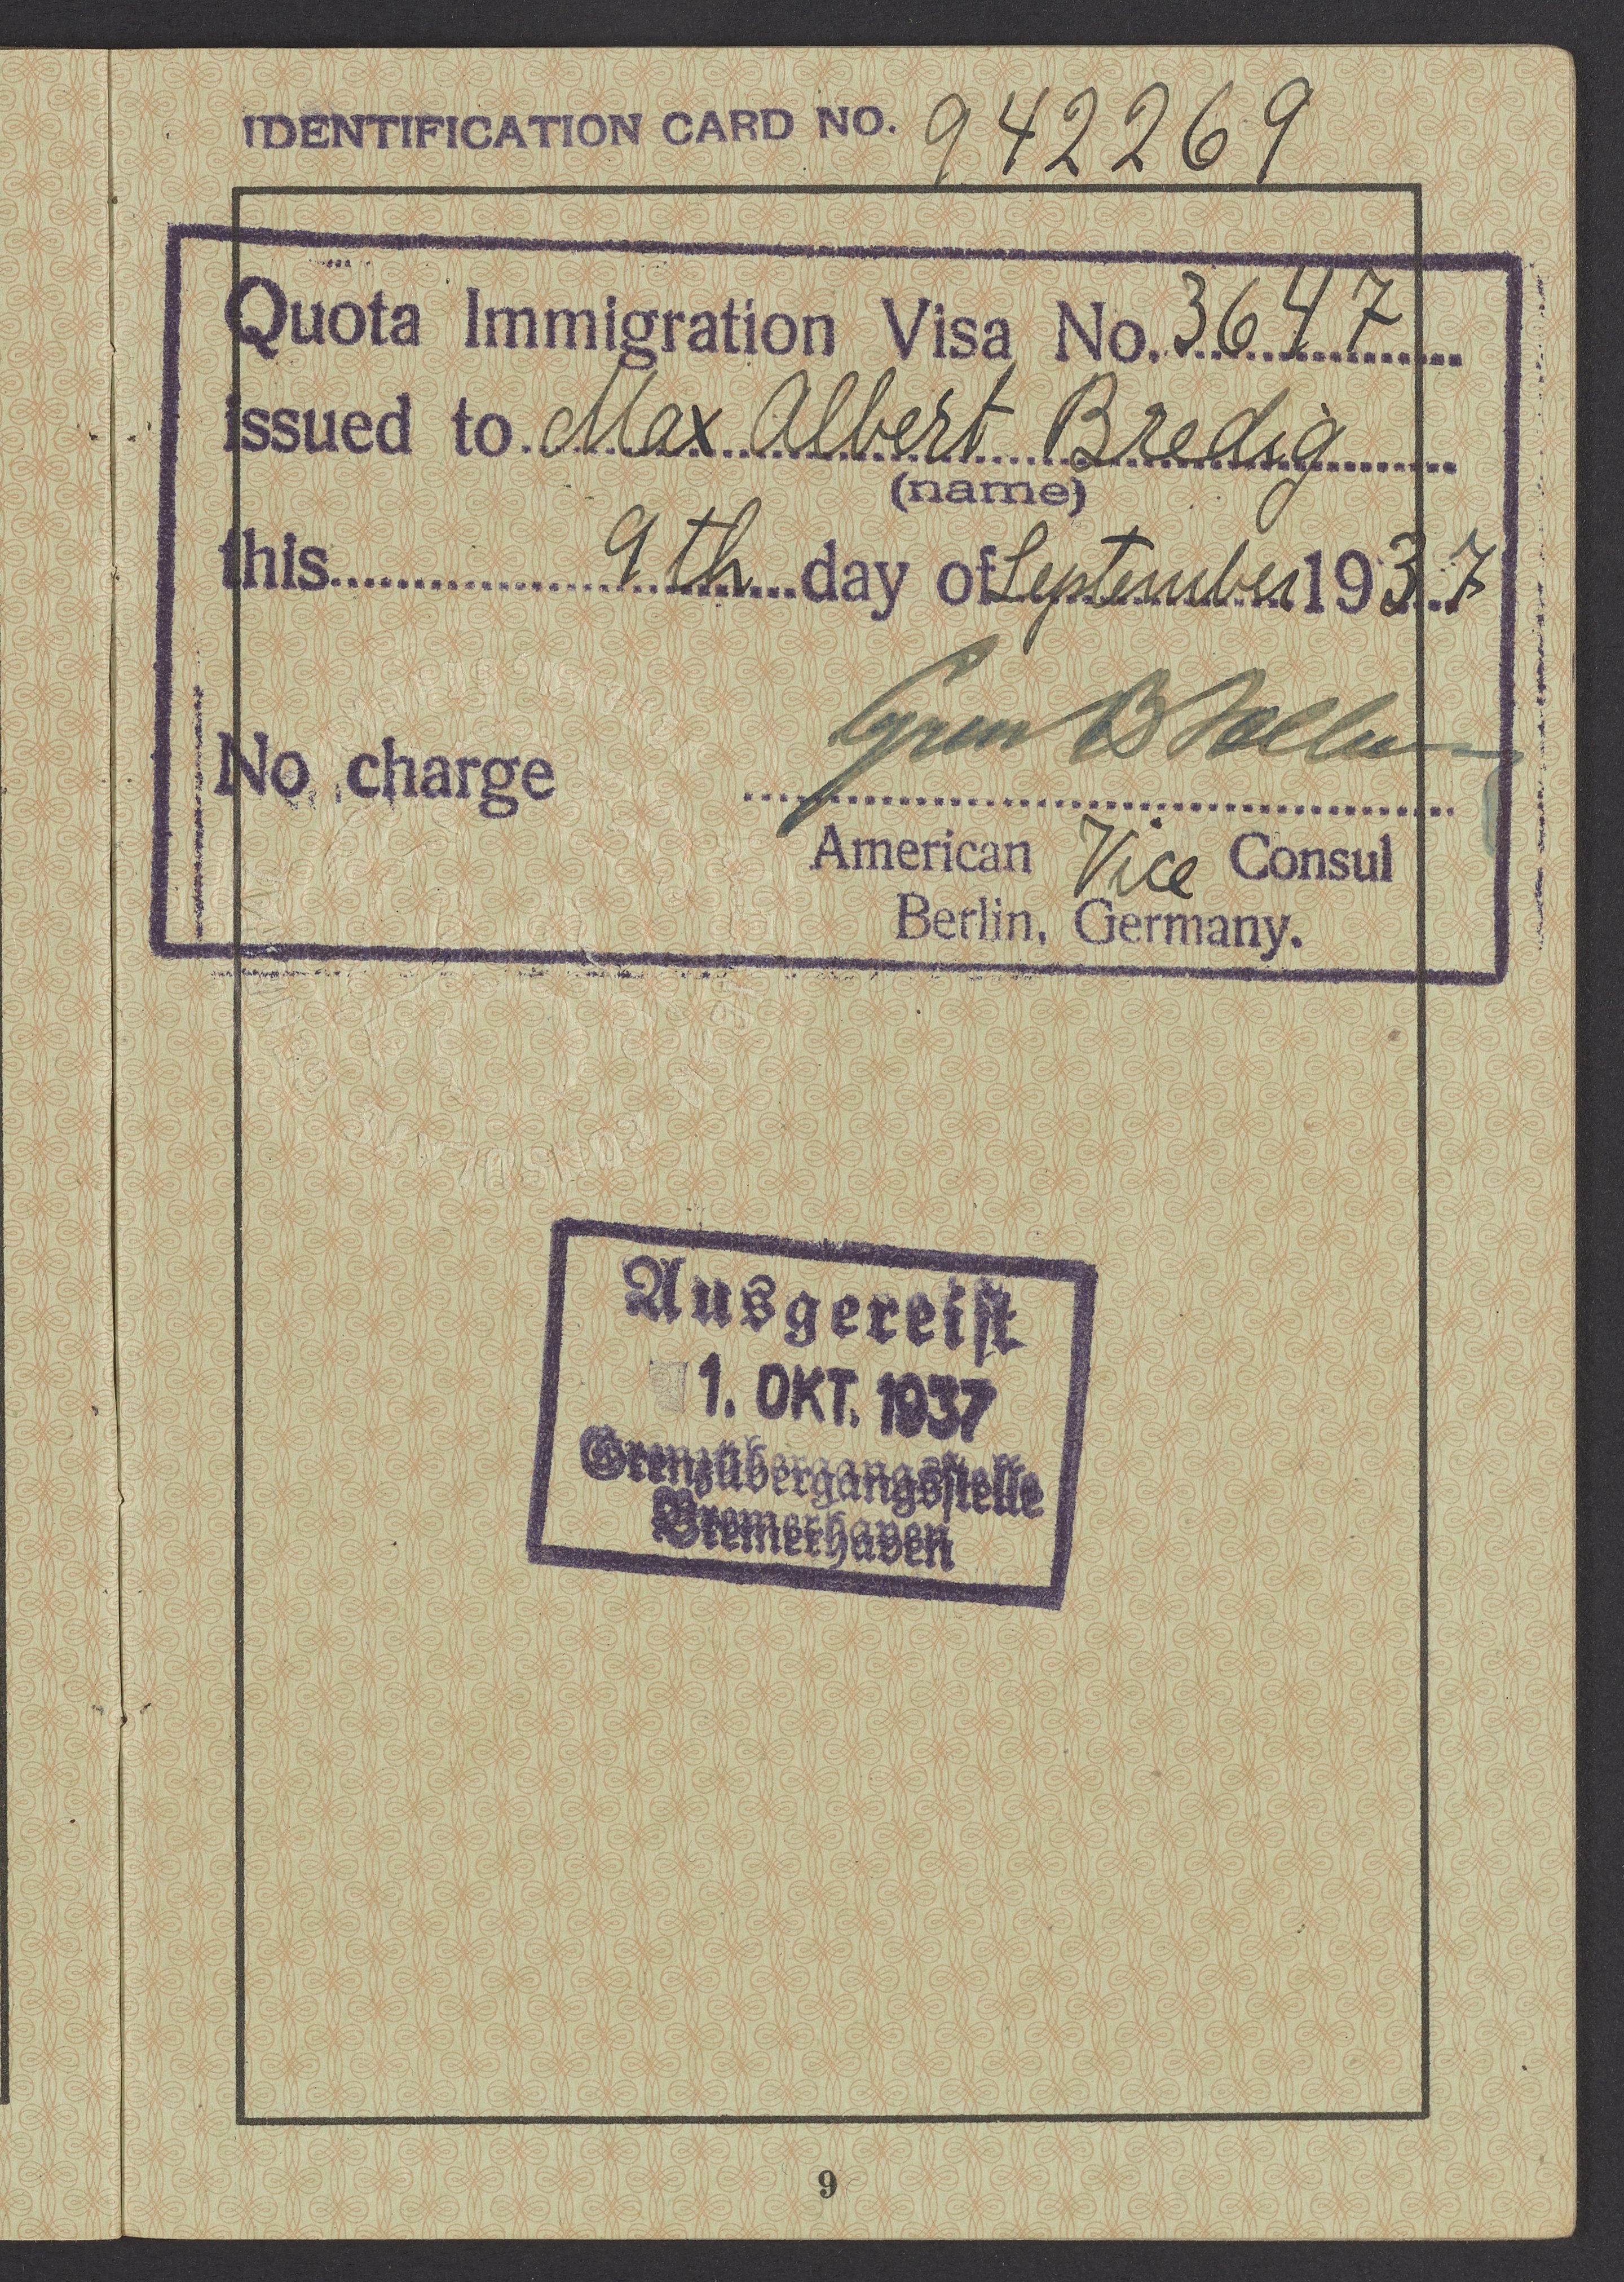 IDENTIFICATION CARD NO. 942269
Quota Immigration Visa No. 3647
issued to Max Albert Bredig
(name)
this 9th day of September 1937
No charge
American Vice Consul
Berlin, Germany.
Ausgereiſt
1. OKT. 1937
Grenzübergangsſtelle
Bremerhaven
9